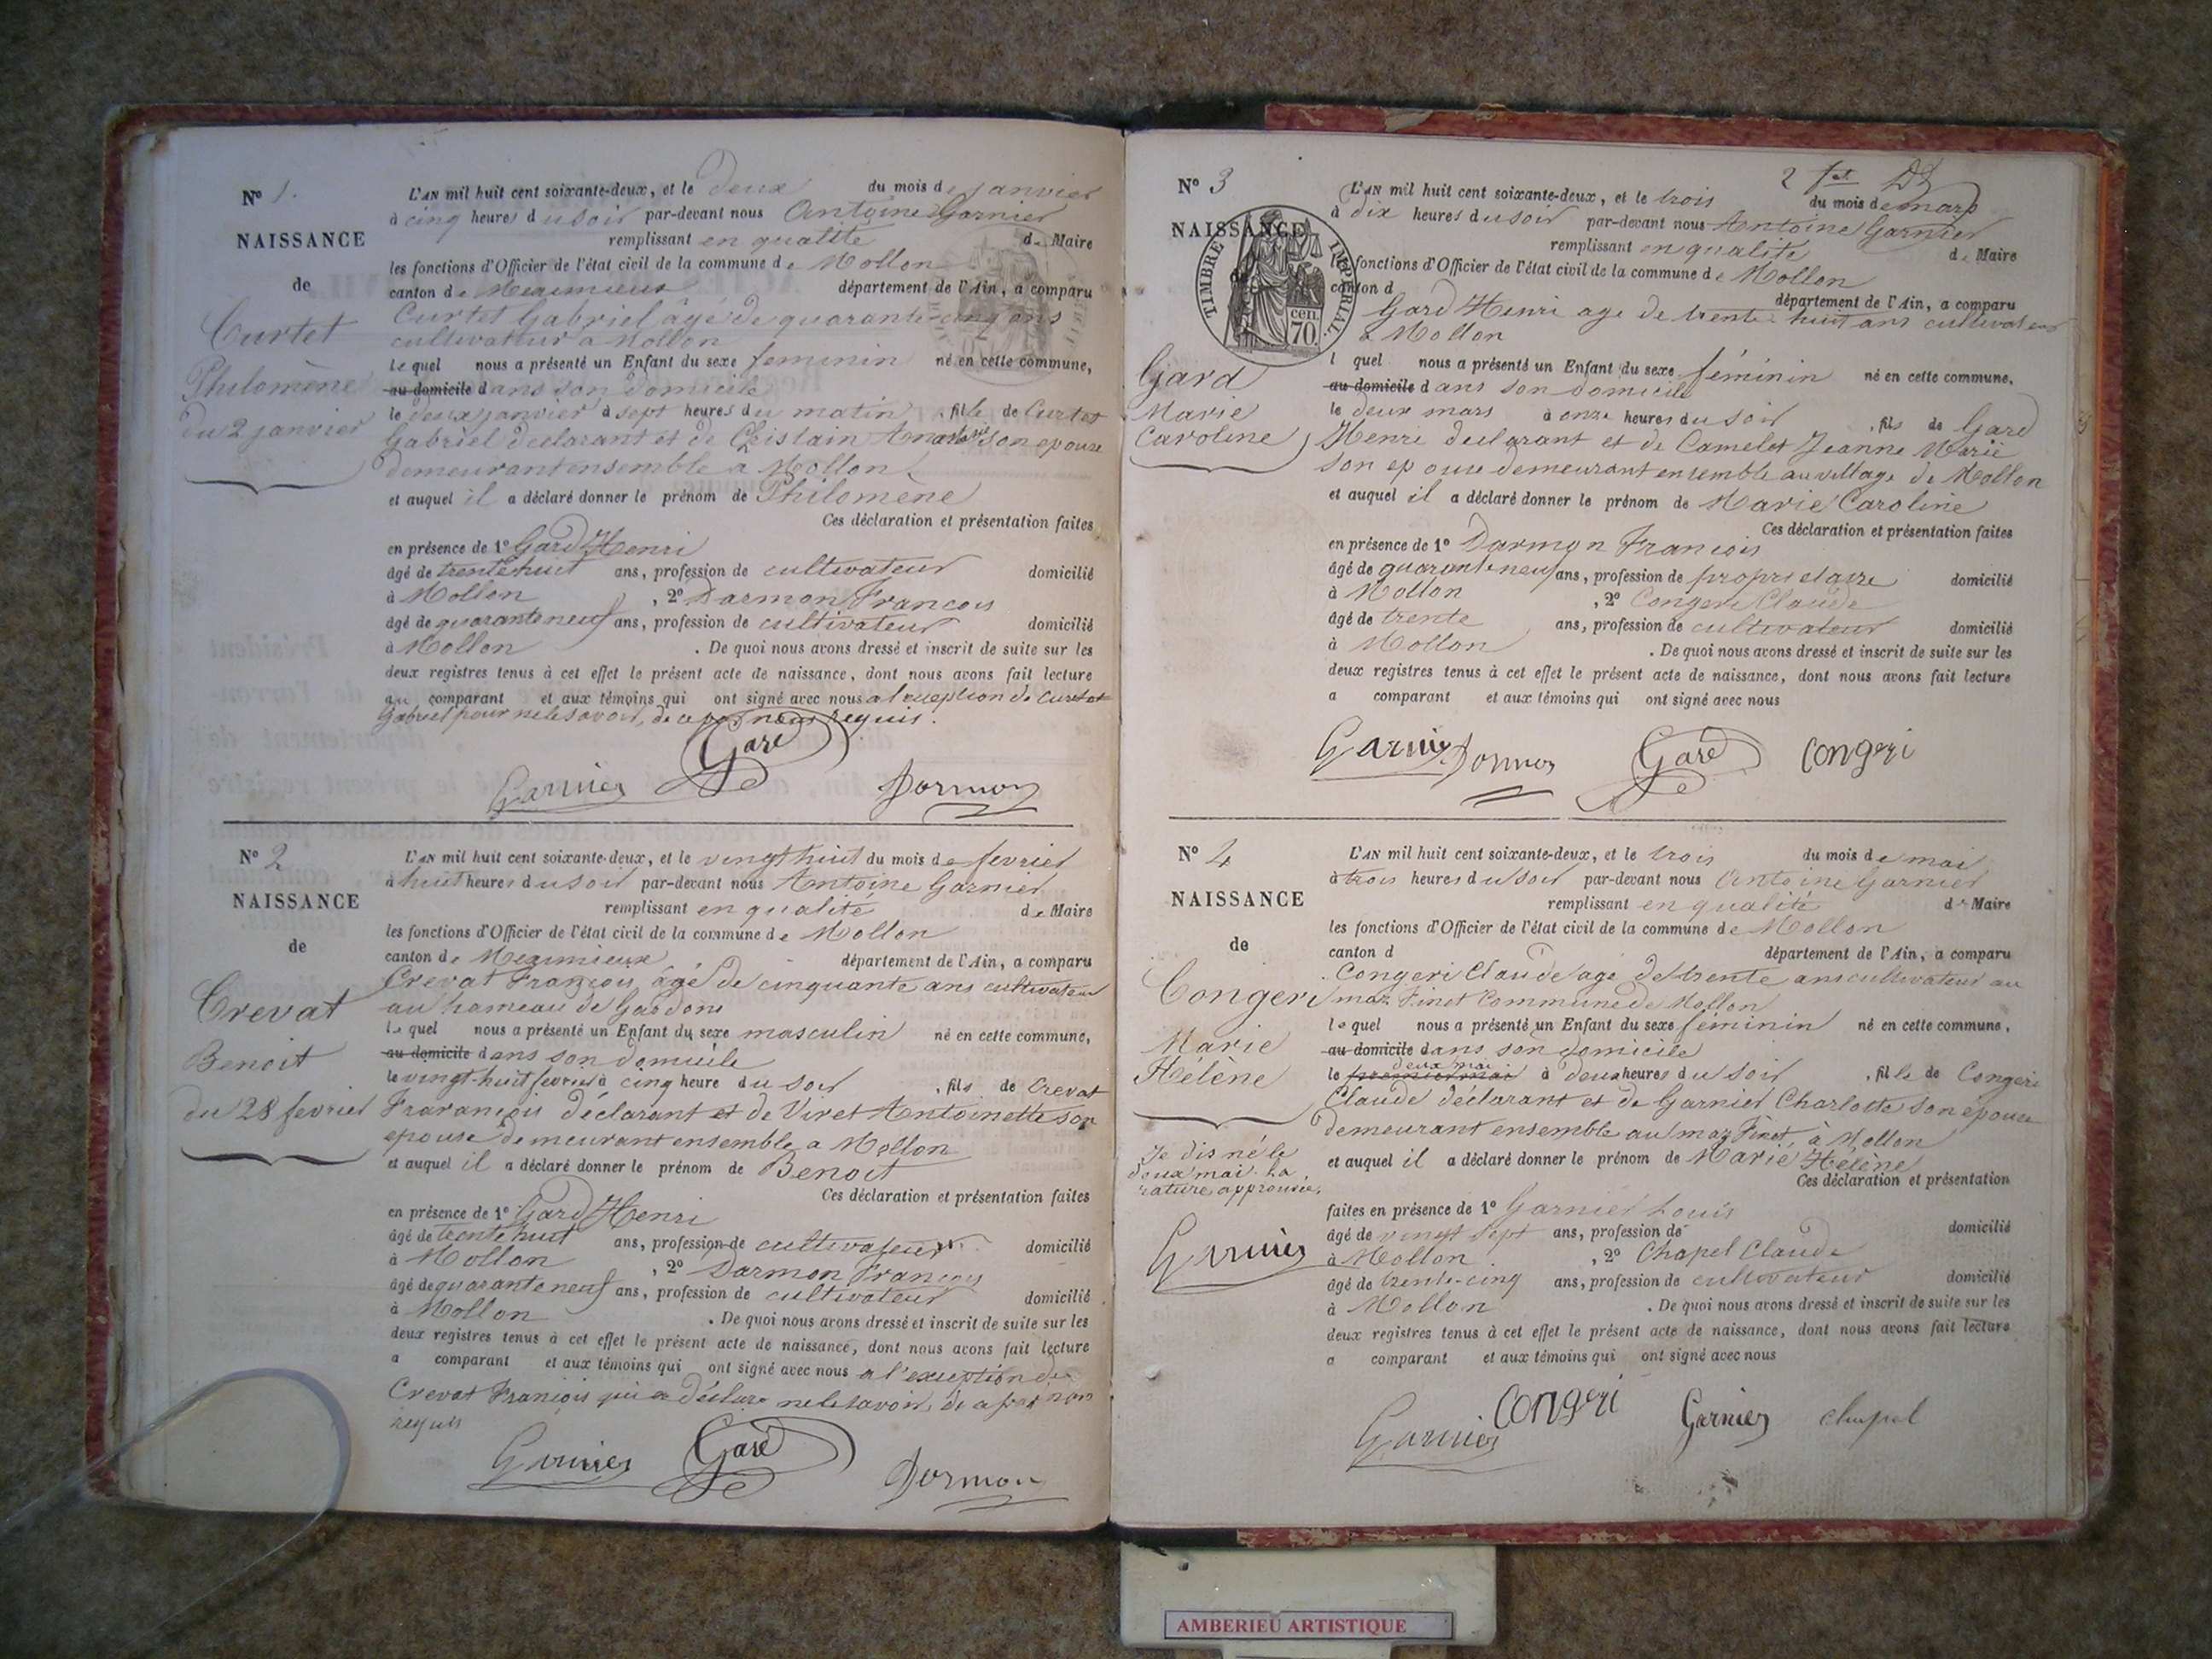 N° 1.
NAISSANCE
de
Curtet
Philomène
du 2 janvier
L'AN mil huit cent soixante-deux, et le deux du mois de janvier
à cinq heures du soir par-devant nous Antoine Garnier
remplissant en qualité de Maire
les fonctions d'Officier de l'état civil de la commune de Mollon
canton de Meximieux département de l'Ain, a comparu
Curtet Gabriel âgé de quarante-cinq ans
cultivateur a Mollon
lequel nous a présenté un Enfant du sexe feminin né en cette commune,
au domicile dans son domicile
le deux janvier à sept heures du matin, fille de Curtet
Gabriel declarant et de son epouse
demeurant ensemble a Mollon
et auquel il a déclaré donner le prénom de Philomène
Ces déclaration et présentation faites
en présence de 1° Gard Henri
âgé de trente huit ans, profession de cultivateur domicilié
à Mollon, 2° Darmon Francois
âgé de quarante neuf ans, profession de cultivateur domicilié
à Mollon. De quoi nous avons dressé et inscrit de suite sur les
deux registres tenus à cet effet le présent acte de naissance, dont nous avons fait lecture
au comparant et aux témoins qui ont signé avec nous a l'exception de Curtet
Gabriel pour ne le savoir, de ce par nous requis.
Gard
Garnier Dormon
N° 2
NAISSANCE
de
Crevat
Benoit
du 28 fevrier
L'AN mil huit cent soixante-deux, et le vingt huit du mois de fevrier
à huit heures du soir par-devant nous Antoine Garnier
remplissant en qualité de Maire
les fonctions d'Officier de l'état civil de la commune de Mollon
canton de Meximieux département de l'Ain, a comparu
Crevat François âgé de cinquante ans cultivateur
au hameau de
lequel nous a présenté un Enfant du sexe masculin né en cette commune,
au domicile dans son domicile
le vingt-huit fevrier à cinq heure du soir, fils de Crevat
déclarant et de Viret Antoinette son
epouse demeurant ensemble a Mollon
et auquel il a déclaré donner le prénom de Benoit
Ces déclaration et présentation faites
en présence de 1° Gard Henri
âgé de trente huit ans, profession de cultivateur domicilié
à Mollon, 2° Darmon François
âgé de quarante neuf ans, profession de cultivateur domicilié
à Mollon. De quoi nous avons dressé et inscrit de suite sur les
deux registres tenus à cet effet le présent acte de naissance, dont nous avons fait lecture
a comparant et aux témoins qui ont signé avec nous a l'exception de
Crevat François qui a déclare ne le savoir, de
requis
Garnier Gard Dormon
2 fet
N° 3
NAISSANCE
TIMBRE IMPERIAL.
70 cen.
Gard
Marie
Caroline
L'AN mil huit cent soixante-deux, et le trois du mois de mars
à dix heures du soir par-devant nous Antoine Garnier
remplissant en qualité de Maire
les fonctions d'Officier de l'état civil de la commune de Mollon
canton d département de l'Ain, a comparu
Gard Henri age de trente-huit ans cultivateur
a Mollon
l quel nous a présenté un Enfant du sexe féminin né en cette commune,
au domicile dans son domicile
le deux mars à onze heures du soir, fils de Gard
Henri declarant et de Camelot Jeanne Marie
son epouse demeurant ensemble au village de Mollon
et auquel il a déclaré donner le prénom de Marie Caroline
Ces déclaration et présentation faites
en présence de 1° Darmon François
âgé de quarante neuf ans, profession de propriétaire domicilié
à Mollon, 2° Congeri Claude
âgé de trente ans, profession de cultivateur domicilié
à Mollon. De quoi nous avons dressé et inscrit de suite sur les
deux registres tenus à cet effet le présent acte de naissance, dont nous avons fait lecture
a comparant et aux témoins qui ont signé avec nous
Garnier Dormon Gard Congeri
N° 4
NAISSANCE
de
Congeri
Marie
Hélène
Je dis né le
deux mai. La
rature approuvée.
Garnier
L'AN mil huit cent soixante-deux, et le trois du mois de mai
à trois heures du soir par-devant nous Antoine Garnier
remplissant en qualité de Maire
les fonctions d'Officier de l'état civil de la commune de Mollon
canton d département de l'Ain, a comparu
Congeri Claude age de trente ans cultivateur au
maz Finet Commune de Mollon
lequel nous a présenté un Enfant du sexe féminin né en cette commune,
au domicile dans son domicile
deux mai
le premier mai à deux heures du soir, fille de Congeri
Claude déclarant et de Garnier Charlotte son epouse
demeurant ensemble au maz Finet, à Mollon
et auquel il a déclaré donner le prénom de Marie Hélène
Ces déclaration et présentation
faites en présence de 1° Garnier Louis
âgé de vingt sept ans, profession de domicilié
à Mollon, 2° Chapel Claude
âgé de trente-cinq ans, profession de cultivateur domicilié
à Mollon. De quoi nous avons dressé et inscrit de suite sur les
deux registres tenus à cet effet le présent acte de naissance, dont nous avons fait lecture
a comparant et aux témoins qui ont signé avec nous
Garnier Congeri Garnier Chapel
AMBERIEU ARTISTIQUE